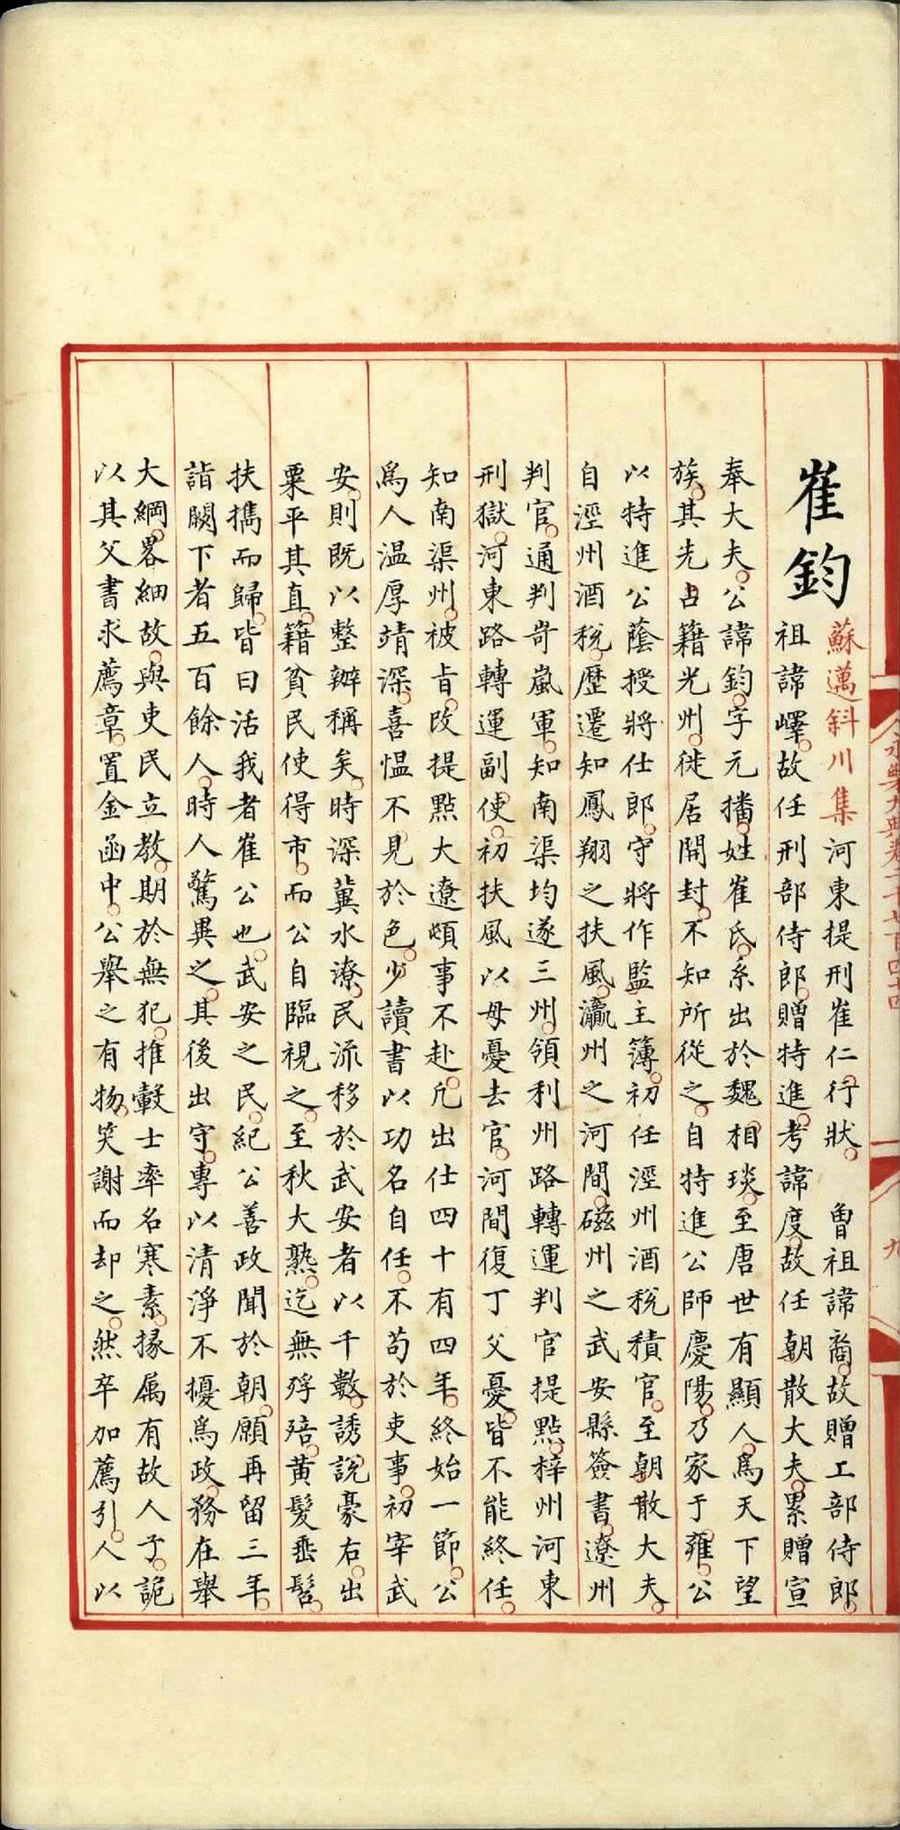 崔鈞
蘇邁斜川集河東提刑崔仁行狀。魯祖諱裔。故贈工部侍郎。
祖諱嶧。故任刑部侍郎。贈特進。考諱度。故任朝散大夫。累贈宣
奉大夫。公諱鈞。字元播。姓崔氏。系出於魏相琰。至唐世有顯人。爲天下望
族。其先占籍光州。徙居開封。不知所從之。自特進公師慶陽。乃家于雍。公
以特進公蔭授將仕郎。守將作監主簿。初任涇州酒稅積官。至朝散大夫。
自涇州酒稅。歷遷知鳳翔之扶風。瀛州之河間。磁州之武安縣簽書。遼州
判官。通判岢嵐軍。知南渠均遂三州。領利州路轉運判官提點。梓州河東
刑獄。河東路轉運副使。初扶風以母憂去官。河間復丁父憂。皆不能終任。
知南渠州。被旨。改提點大遼頓事不赴。凡出仕四十有四年。終始一節。公
爲人温厚靖深。喜愠不見於色。少讀書以功名自任。不苟於吏事。初宰武
安。則既以整辦稱矣。時深冀水潦。民流移於武安者以千數。誘說豪右。出
粟平其直。籍貧民使得市。而公自臨視之。至秋大熟。迄無殍殣。黄髮垂髫。
扶擕而歸。皆曰活我者崔公也。武安之民。紀公善政聞於朝。願再留三年。
詣闕下者五百餘人。時人驚異之。其後出守。專以清淨不擾爲政。務在舉
大綱。畧細故。與吏民立教。期於無犯。推轂士率名寒素。掾屬有故人子。詭
以其父書求薦章。置金函中。公舉之有物。笑謝而却之。然卒加薦引。人以
永樂大典卷二千七百四十四
九